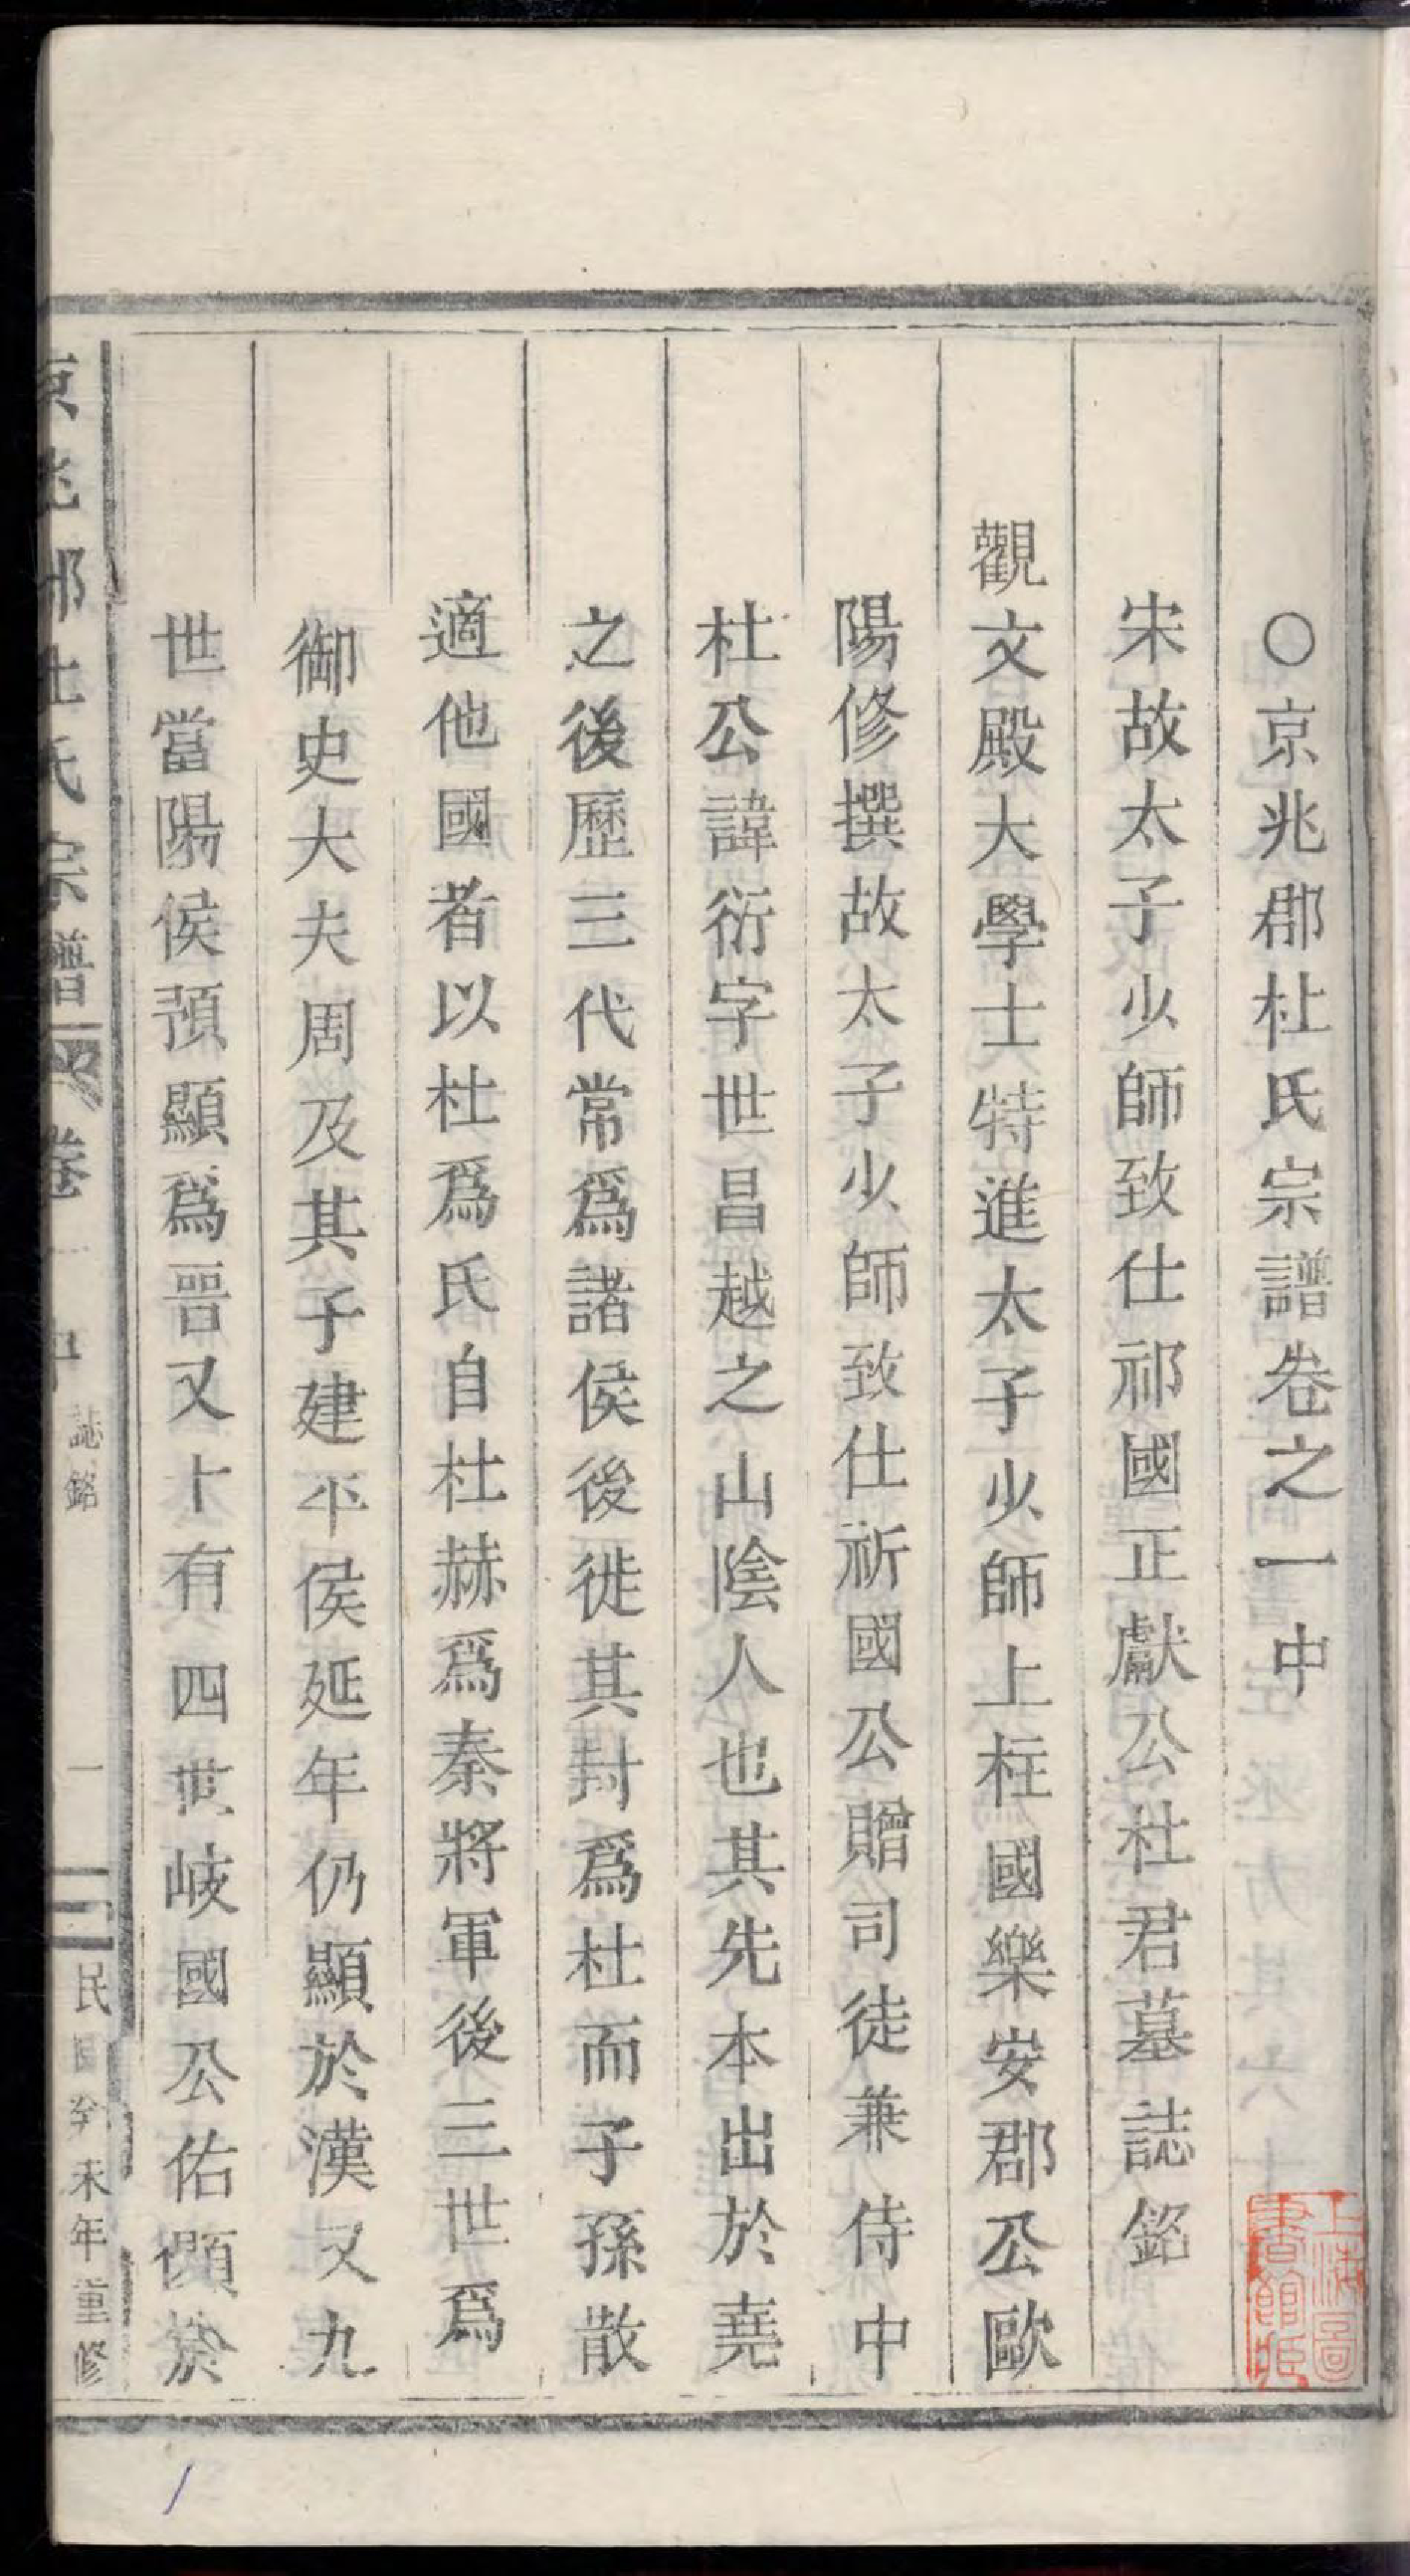 ○京兆郡杜氏宗譜卷之一中
宋故太子少師致仕祁國正獻公杜君墓誌銘
觀文殿大學士特進太子少師上柱國樂安郡公歐
陽修撰故太子少師致仕祈國公贈司徒兼侍中
杜公諱衍字世昌越之山陰人也其先本出於堯
之後歷三代常爲諸侯後徙其封爲杜而子孫散
適他國者以杜爲氏自杜赫爲秦將軍後三世爲
御史大夫周及其子建平侯延年仍顯於漢又九
世當陽侯預顯爲晋又十有四世岐國公佑顯於
京兆郡杜氏宗譜 卷一中 誌銘 一 民國癸未年重修
上海圖書館藏